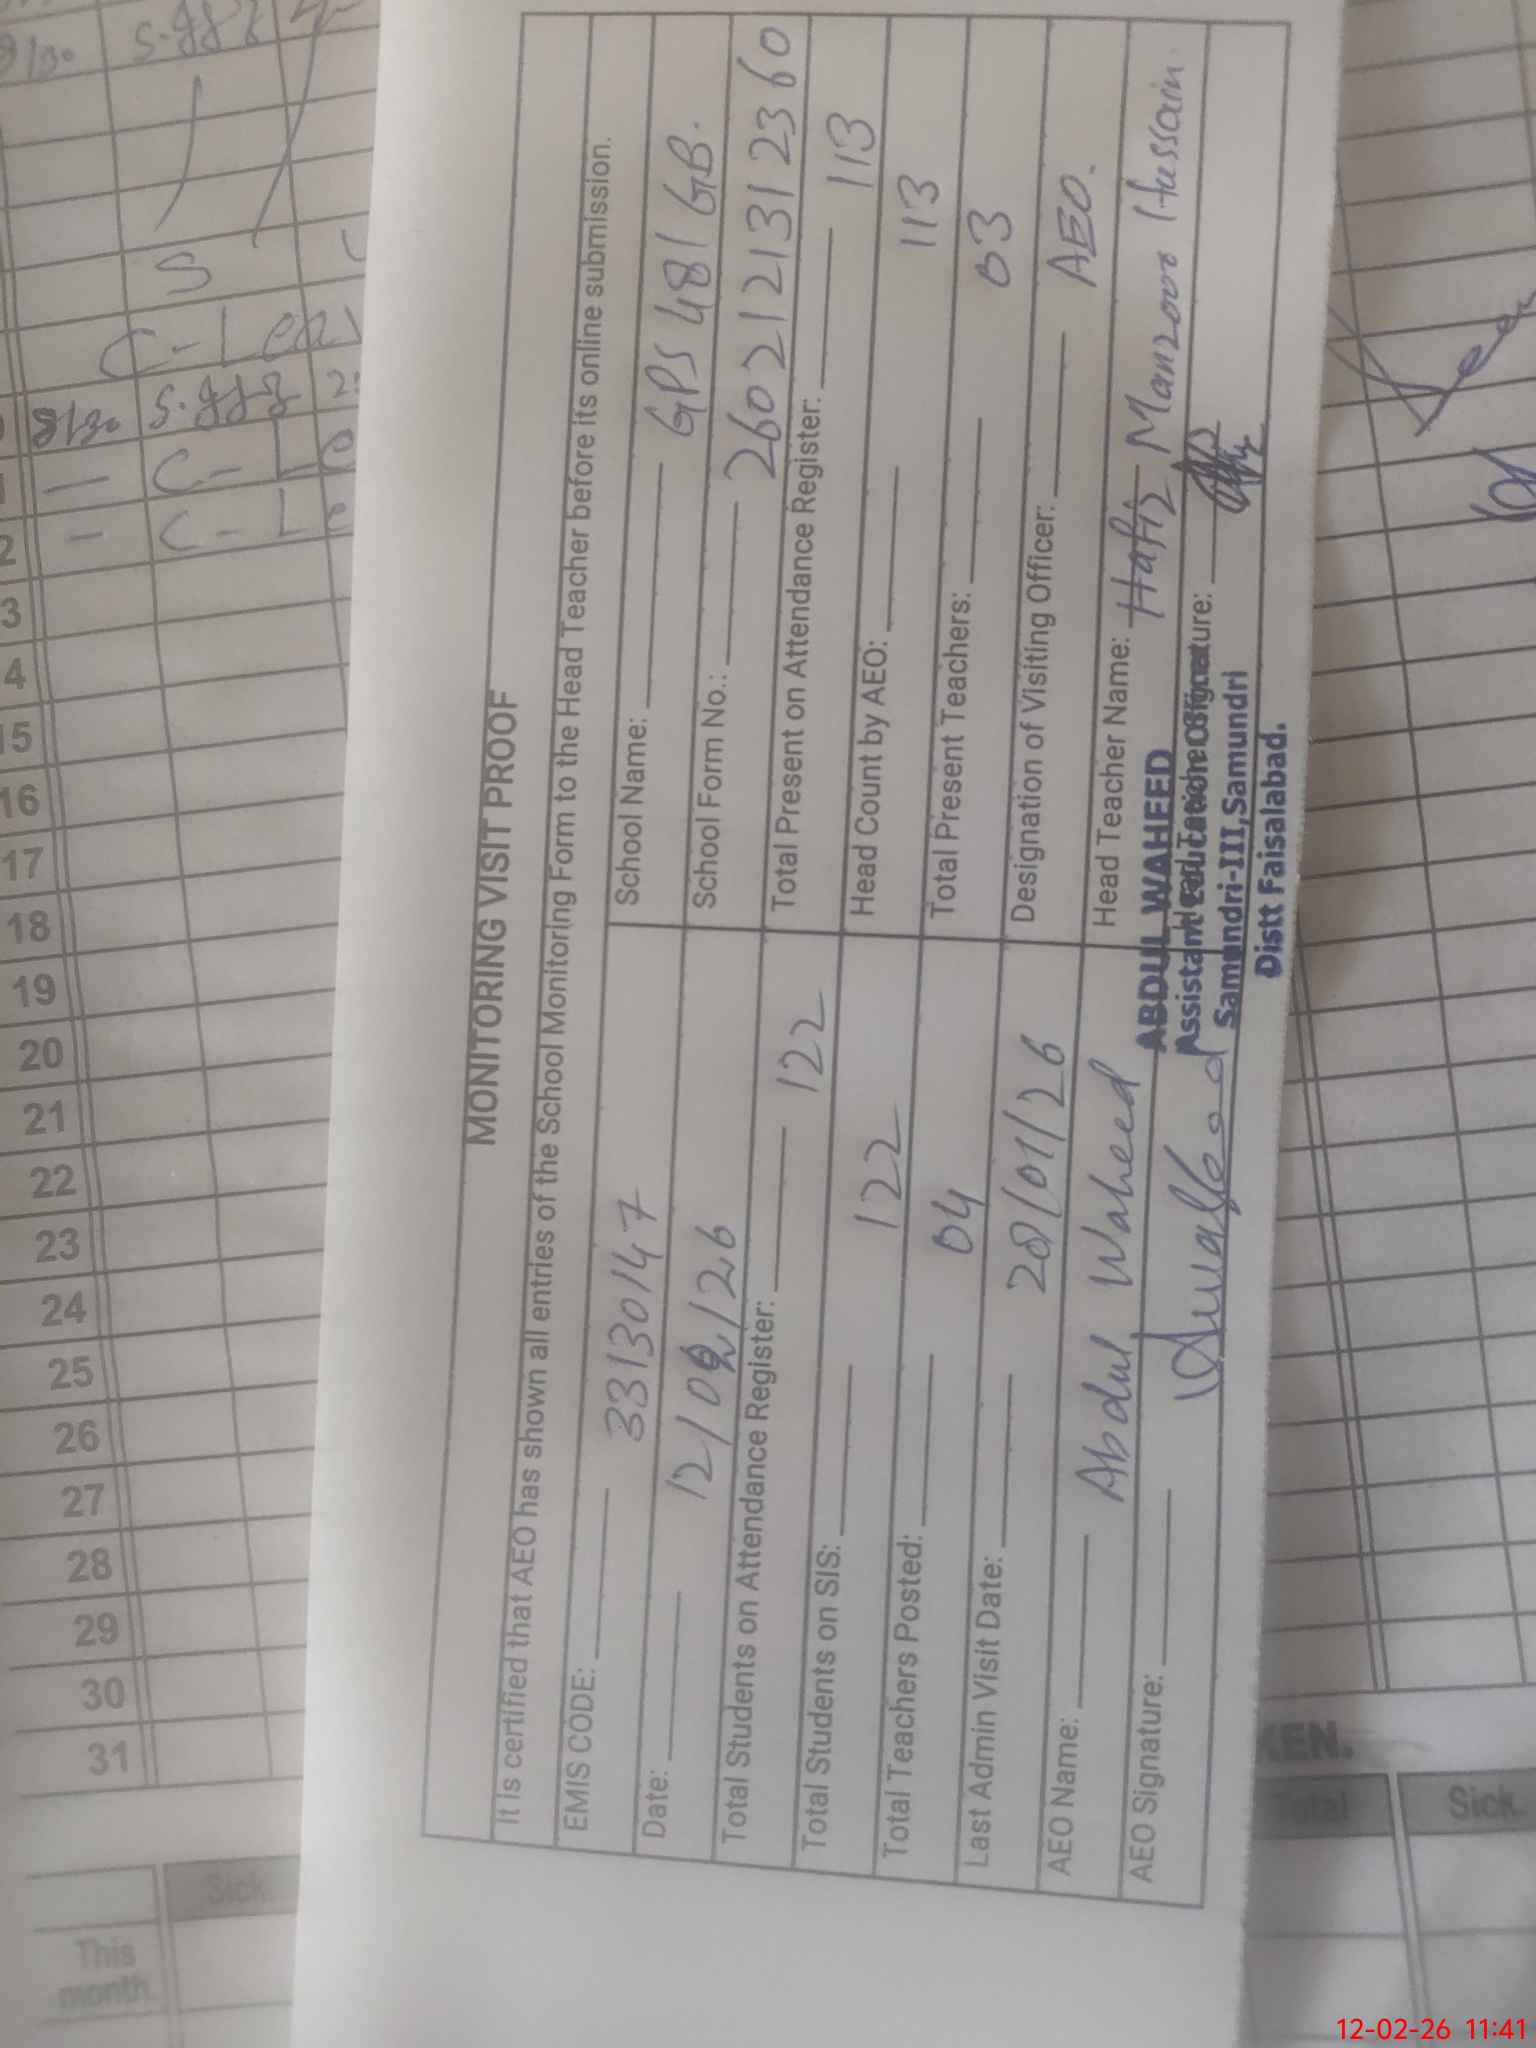 MONITORING VISIT PROOF
It is certified that AEO has shown all entries of the School Monitoring Form to the Head Teacher before its online submission.
EMIS CODE: 33130147
School Name: GPS 481 GB.
Date: 12/02/26
School Form No.: 26021213112360
Total Students on Attendance Register: 122
Total Present on Attendance Register: 113
Total Students on SIS: 122
Head Count by AEO: 113
Total Teachers Posted: 04
Total Present Teachers: 03
Last Admin Visit Date: 28/01/26
Designation of Visiting Officer: AEO.
AEO Name: Abdul Waheed
Head Teacher Name: Hafiz Manzoor Hussain.
AEO Signature:
Head Teacher Signature:
ABDUL WAHEED
Assistant Education Officer
Samundri-III, Samundri
Distt Faisalabad.
C-Leav
C-Le
C-Le
2
3
4
15
16
17
18
19
20
21
22
23
24
25
26
27
28
29
30
31
This month
Sick.
KEN.
Total
Sick.
12-02-26 11:41